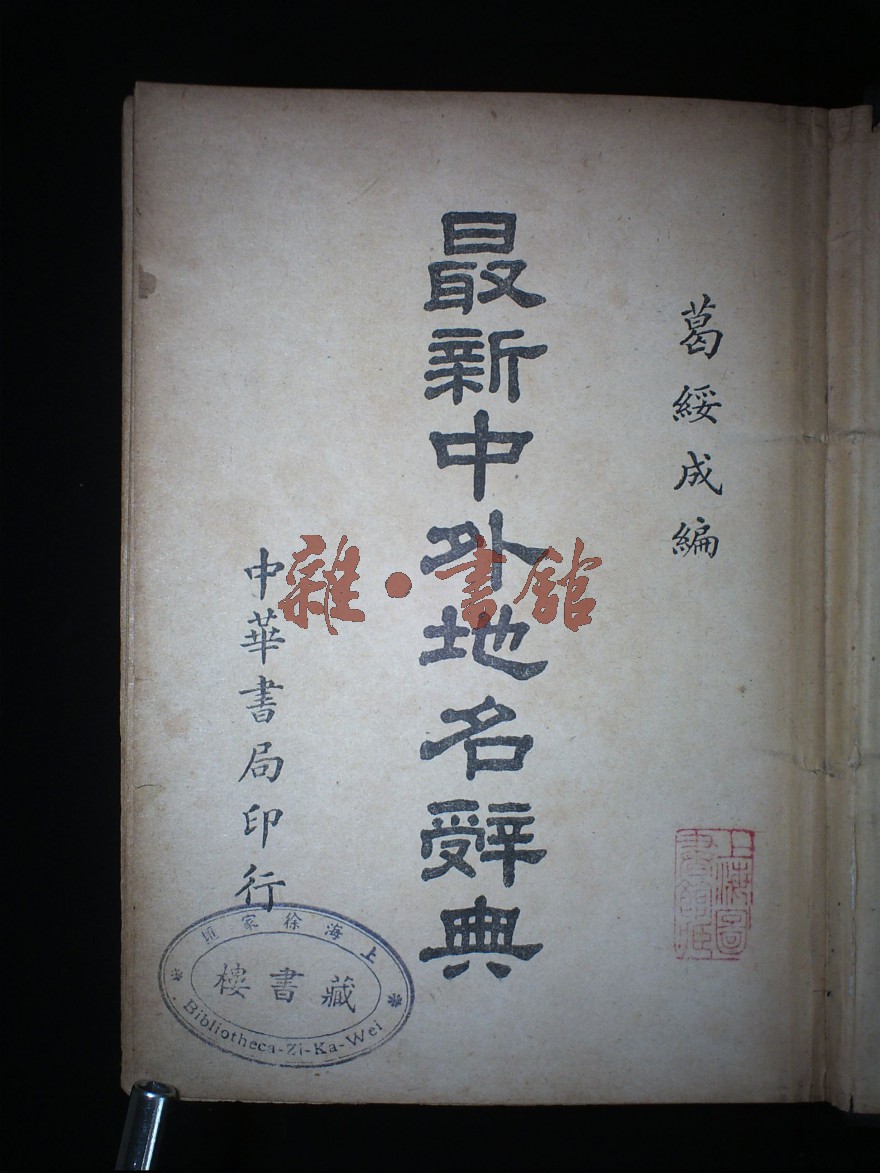 葛綏成編
最新中外地名辭典
中華書局印行
雜·書館
上海徐家匯
藏書樓
Bibliotheca-Zi-Ka-Wei
上海圖書館藏